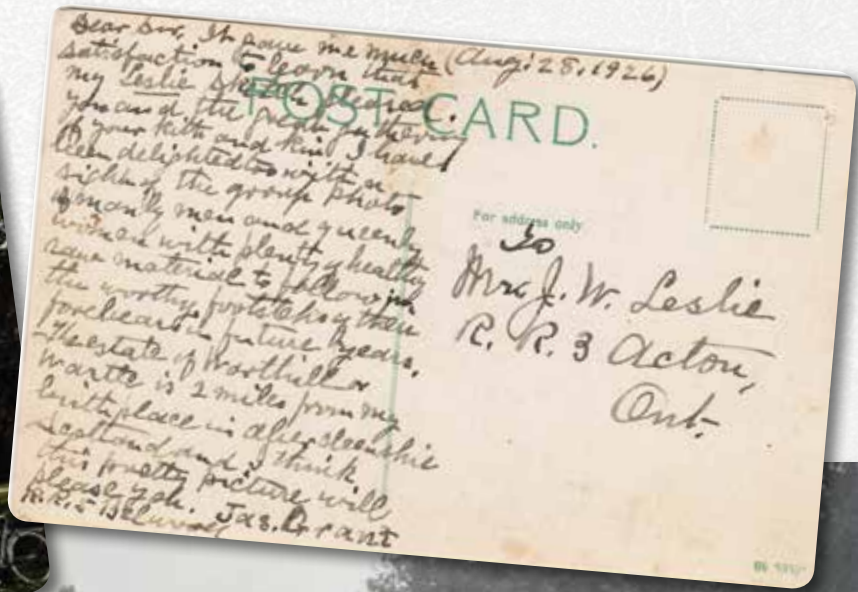 Dear Sir, It gave me much (Aug: 28, 1926)
satisfaction to learn that
my Leslie sketch pleased
you and the great gathering
of your kith and kin. I have
been delighted too with a
sight of the group photo
of manly men and queenly
women with plenty healthy
raw material to follow in
the worthy footsteps of their
forebears in future years.
The estate of Warthill or
Wartle is 2 miles from my
birthplace in Aberdeenshire
Scotland and I think
this pretty picture will
please you. Jas. Grant
R.R.
POST CARD.
For address only
To
J. W. Leslie
R. R. 3 Acton,
Ont.